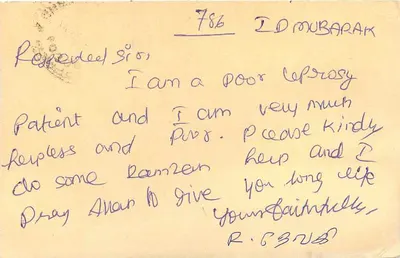 786 I D MUBARAK
Respected Sir,
I am a poor leprosy
Patient and I am very much
helpless and Poor. Please kindly
do some Ramzan help and I
Pray Allah to give you long life
Yours faithfully,
R.